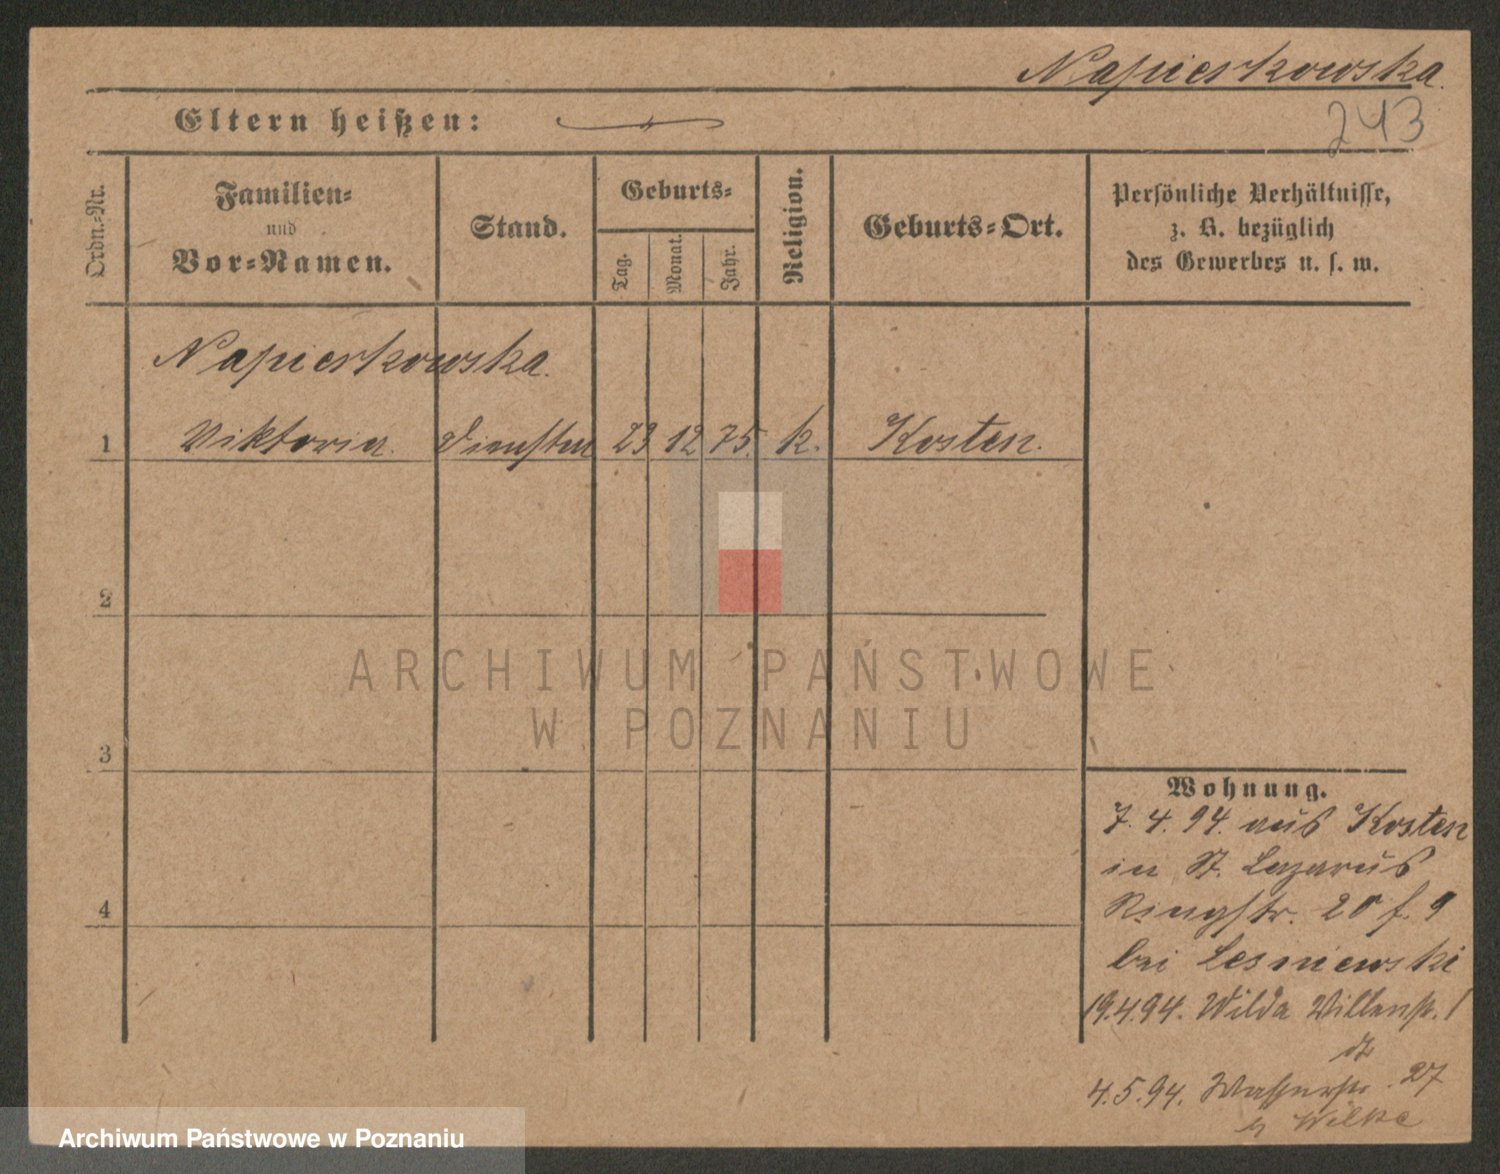 Napierkowska.
243
Eltern heißen:
Ordn.-Nr.
Familien-
und
Vor-Namen.
Stand.
Geburts-
Tag.
Monat.
Jahr.
Religion.
Geburts-Ort.
Persönliche Verhältnisse,
z. B. bezüglich
des Gewerbes u. s. w.
Napierkowska.
1 Viktoria. 23 12 75. k. Kosten.
2
3
4
ARCHIWUM PAŃSTWOWE
W POZNANIU
Wohnung.
7. 4. 94. aus Kosten
in St. Lazarus
Ringstr. 20 f. 9
bei Lesniewski
19.4.94. Wilda Villenstr. 1
4.5.94. Wasserstr. 27
b Wilke
Archiwum Państwowe w Poznaniu